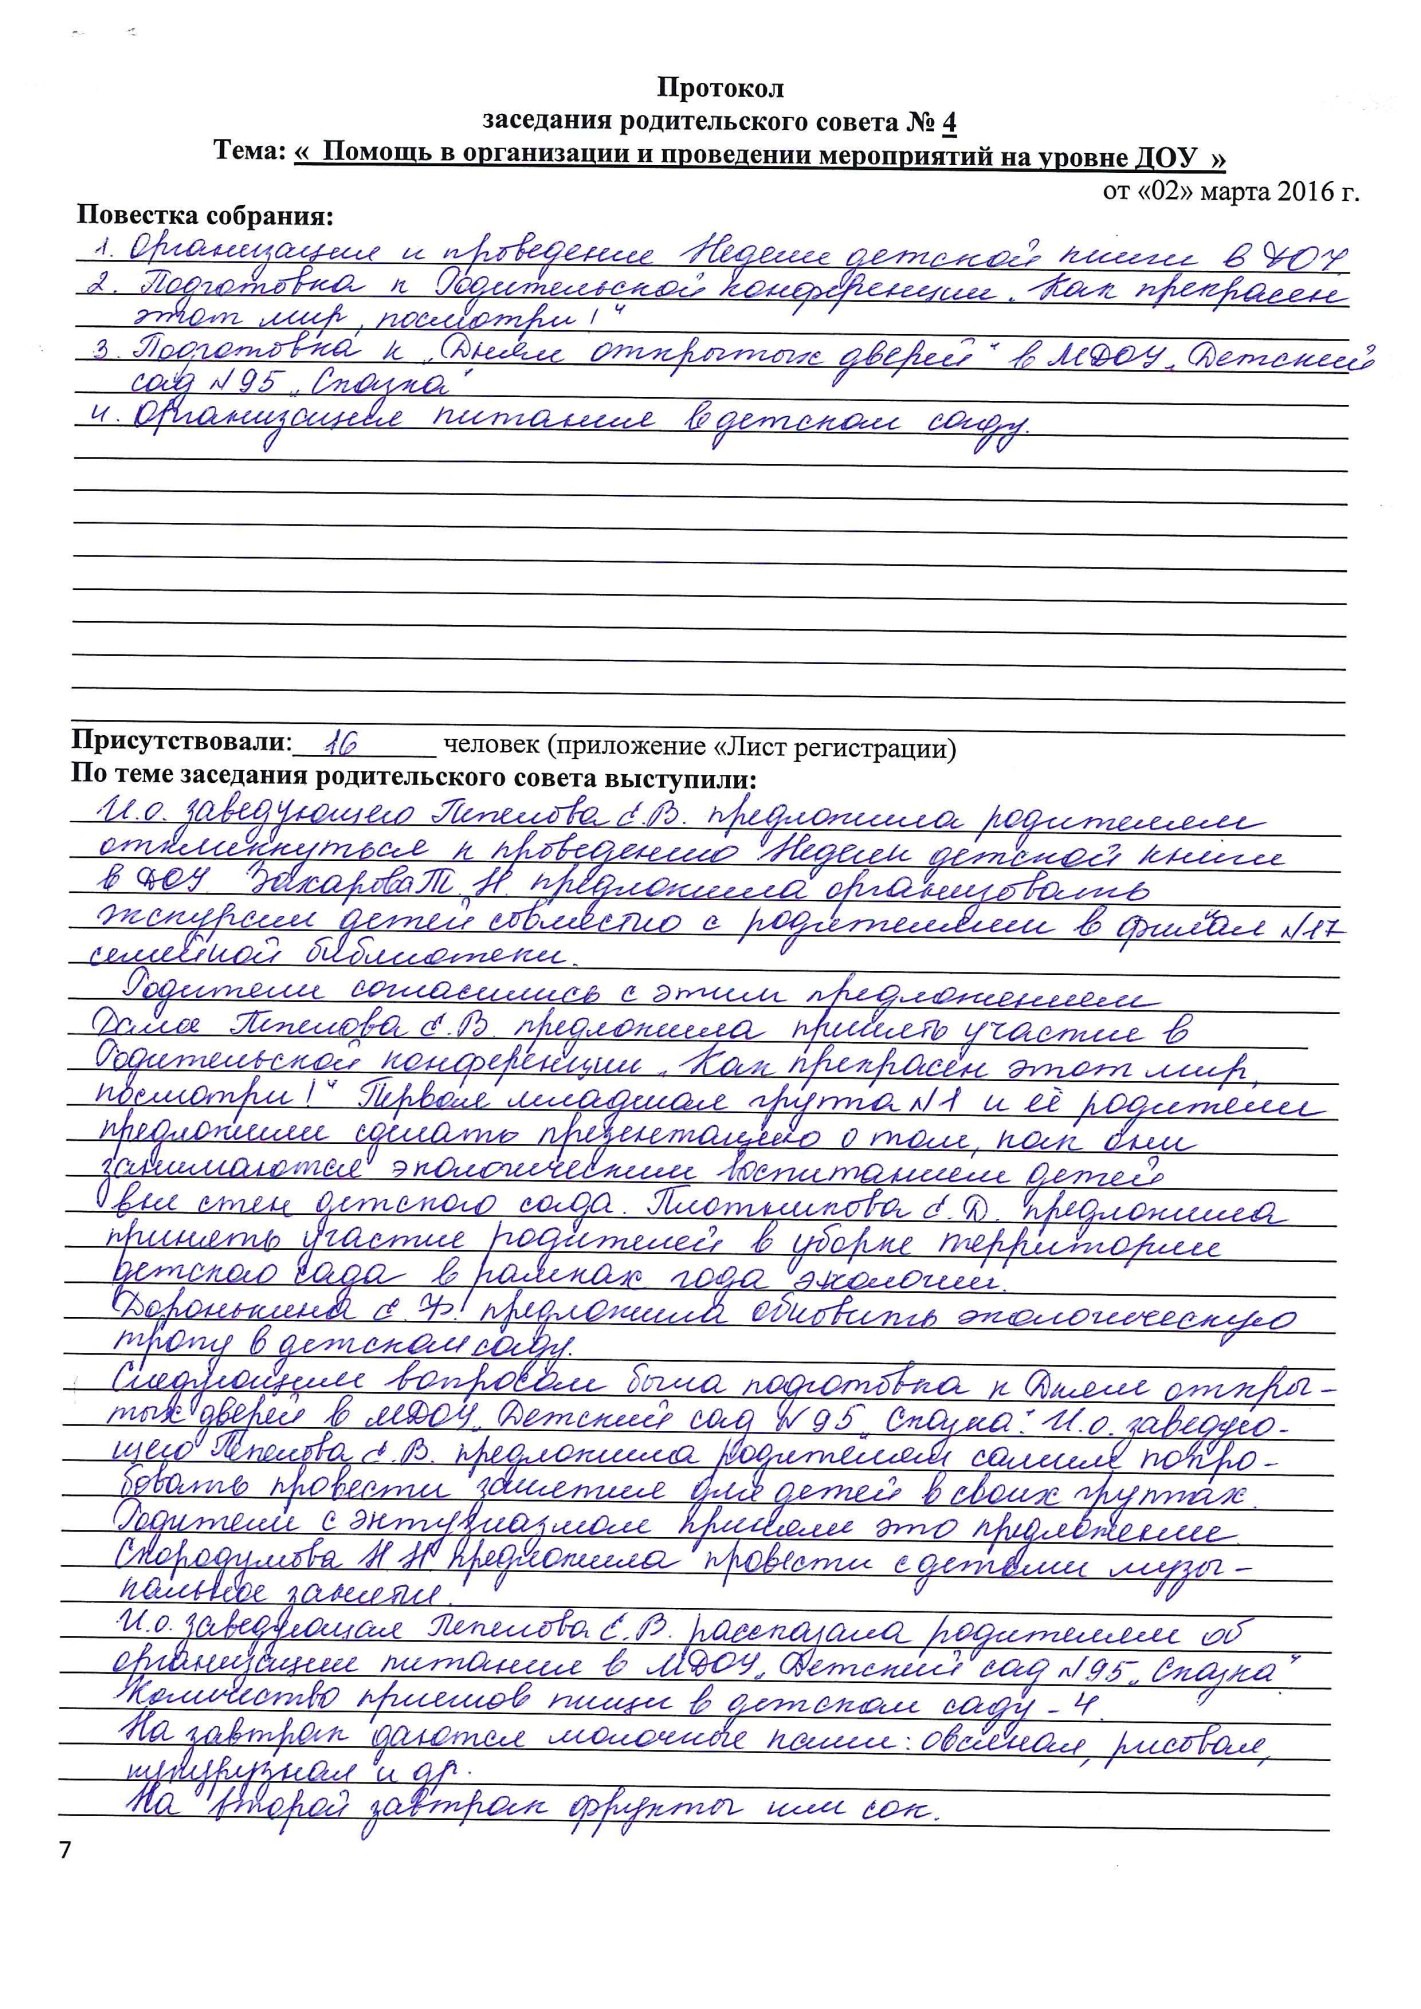 Протокол
заседания родительского совета № 4
Тема: «  Помощь в организации и проведении мероприятий на уровне ДОУ  »
от «02» марта 2016 г.
Повестка собрания:
1. Организация и проведение Недели детской книги в ДОУ
2. Подготовка к Родительской конференции „Как прекрасен
этот мир, посмотри!“
3. Подготовка к „Дням открытых дверей“ в МДОУ „Детский
сад №95 „Сказка“
4. Организация питания в детском саду.
Присутствовали: 16 человек (приложение «Лист регистрации)
По теме заседания родительского совета выступили:
И.о. заведующего Пепелова Е.В. предложила родителям
откликнуться к проведению Недели детской книги
в ДОУ Захарова Т.Н. предложила организовать
экскурсии детей совместно с родителями в филиал №17
семейной библиотеки.
Родители согласились с этим предложением
Далее Пепелова Е.В. предложила принять участие в
Родительской конференции „Как прекрасен этот мир,
посмотри!“ Первая младшая группа №1 и её родители
предложили сделать презентацию о том, как они
занимаются экологическим воспитанием детей
вне стен детского сада. Плотникова Е.Д. предложила
принять участие родителей в уборке территории
детского сада в рамках года экологии.
Доронькина Е.Ф. предложила обновить экологическую
тропу в детском саду.
Следующим вопросом была подготовка к Дням откры-
тых дверей в МДОУ „Детский сад №95 „Сказка“. И.о. заведую-
щего Пепелова Е.В. предложила родителям самим попро-
бовать провести занятия для детей в своих группах.
Родители с энтузиазмом приняли это предложение.
Скородумова Н.Н. предложила провести с детьми музы-
кальное занятие.
И.о. заведующая Пепелова Е.В. рассказала родителям об
организации питания в МДОУ „Детский сад №95 „Сказка“
Количество приемов пищи в детском саду - 4.
На завтрак даются молочные каши: овсяная, рисовая,
кукурузная и др.
На второй завтрак фрукты или сок.
7